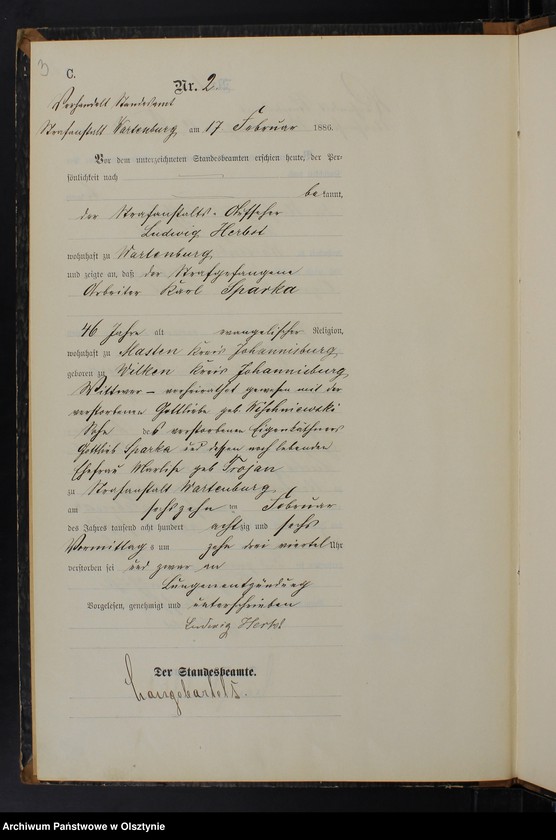 3
C.
Nr. 2.
Verhandelt Standesamt
Strafanstalt Wartenburg, am 17 Februar 1886.
Vor dem unterzeichneten Standesbeamten erschien heute, der Per-
sönlichkeit nach
be kannt,
der Strafanstalts-Aufseher
Ludwig Herbst
wohnhaft zu Wartenburg,
und zeigte an, daß der Strafgefangene
Arbeiter Karl Sparka
46 Jahre alt evangelischer Religion,
wohnhaft zu Masten Kreis Johannisburg,
geboren zu Wilken Kreis Johannisburg,
Wittwer – verheirathet gewesen mit der
verstorbenen Gottliebe geb.
Sohn des verstorbenen Eigenkäthners
Gottlieb Sparka und dessen noch lebenden
Ehefrau geb Trojan
zu Strafanstalt Wartenburg,
am sechszehn ten Februar
des Jahres tausend acht hundert achtzig und sechs
Vormittags um zehn drei viertel Uhr
verstorben sei und zwar an
Lungenentzündung
Vorgelesen, genehmigt und unterschrieben
Ludwig Herbst
Der Standesbeamte.
Langebartels.
Archiwum Państwowe w Olsztynie